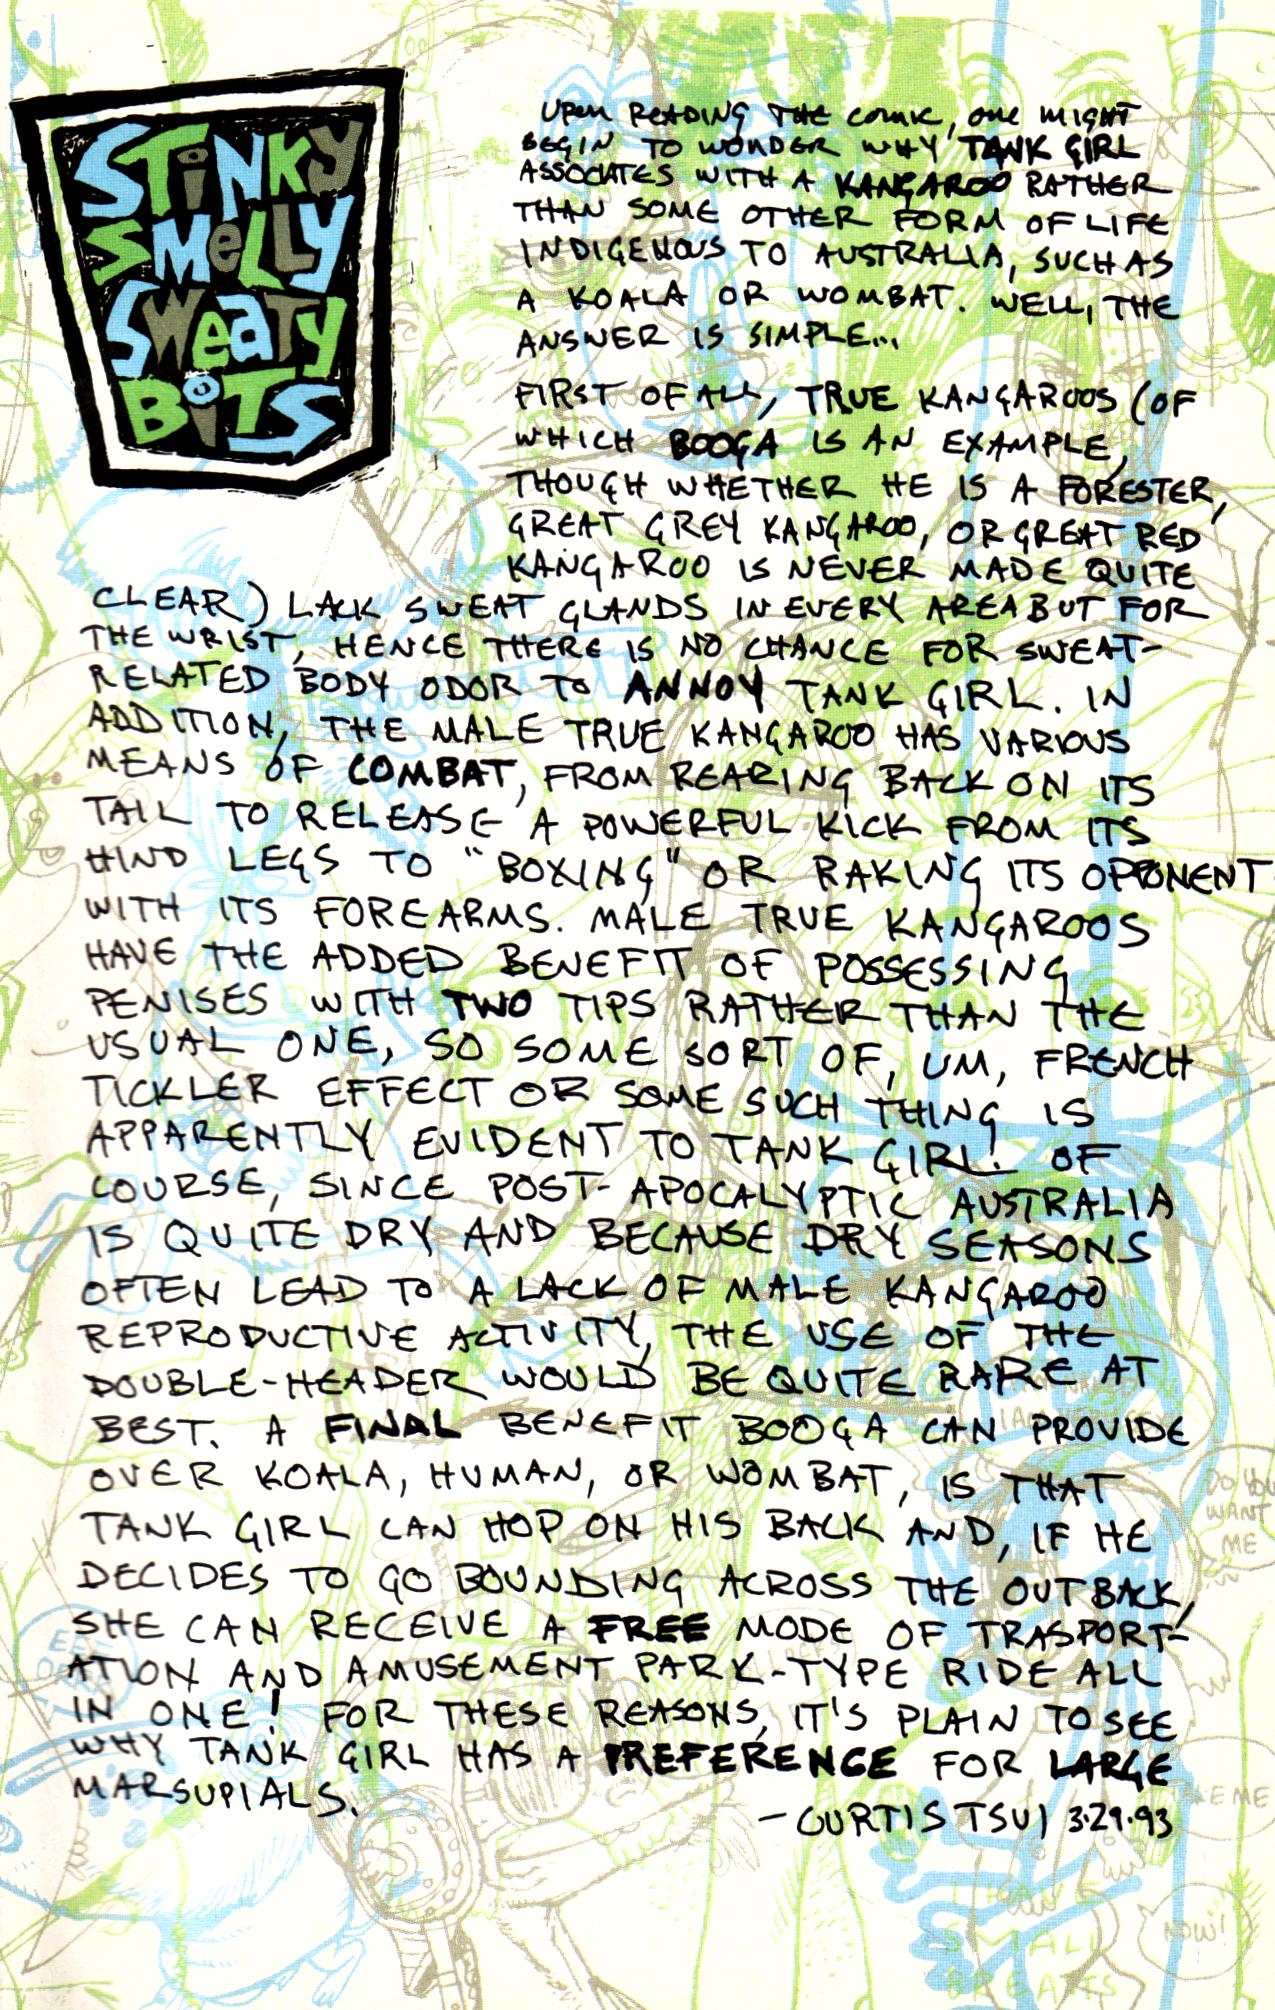 STiNKy
SMeLLy
SWeaTy
BiTS
UPON READING THE COMIC, ONE MIGHT
BEGIN TO WONDER WHY TANK GIRL
ASSOCIATES WITH A KANGAROO RATHER
THAN SOME OTHER FORM OF LIFE
INDIGENOUS TO AUSTRALIA, SUCH AS
A KOALA OR WOMBAT. WELL, THE
ANSWER IS SIMPLE...
FIRST OF ALL, TRUE KANGAROOS (OF
WHICH BOOGA IS AN EXAMPLE,
THOUGH WHETHER HE IS A FORESTER,
GREAT GREY KANGAROO, OR GREAT RED
KANGAROO IS NEVER MADE QUITE
CLEAR) LACK SWEAT GLANDS IN EVERY AREA BUT FOR
THE WRIST, HENCE THERE IS NO CHANCE FOR SWEAT-
RELATED BODY ODOR TO ANNOY TANK GIRL. IN
ADDITION, THE MALE TRUE KANGAROO HAS VARIOUS
MEANS OF COMBAT, FROM REARING BACK ON ITS
TAIL TO RELEASE A POWERFUL KICK FROM ITS
HIND LEGS TO "BOXING" OR RAKING ITS OPPONENT
WITH ITS FOREARMS. MALE TRUE KANGAROOS
HAVE THE ADDED BENEFIT OF POSSESSING
PENISES WITH TWO TIPS RATHER THAN THE
USUAL ONE, SO SOME SORT OF, UM, FRENCH
TICKLER EFFECT OR SOME SUCH THING IS
APPARENTLY EVIDENT TO TANK GIRL! OF
COURSE, SINCE POST-APOCALYPTIC AUSTRALIA
IS QUITE DRY AND BECAUSE DRY SEASONS
OFTEN LEAD TO A LACK OF MALE KANGAROO
REPRODUCTIVE ACTIVITY, THE USE OF THE
DOUBLE-HEADER WOULD BE QUITE RARE AT
BEST. A FINAL BENEFIT BOOGA CAN PROVIDE
OVER KOALA, HUMAN, OR WOMBAT, IS THAT
TANK GIRL CAN HOP ON HIS BACK AND, IF HE
DECIDES TO GO BOUNDING ACROSS THE OUTBACK,
SHE CAN RECEIVE A FREE MODE OF TRASPORT-
ATION AND AMUSEMENT PARK-TYPE RIDE ALL
IN ONE! FOR THESE REASONS, IT'S PLAIN TO SEE
WHY TANK GIRL HAS A PREFERENCE FOR LARGE
MARSUPIALS.
- CURTIS TSUI 3.29.93
DO YOU
WANT
ME
ME
NOW!
I HAVE
SMALL
BREASTS